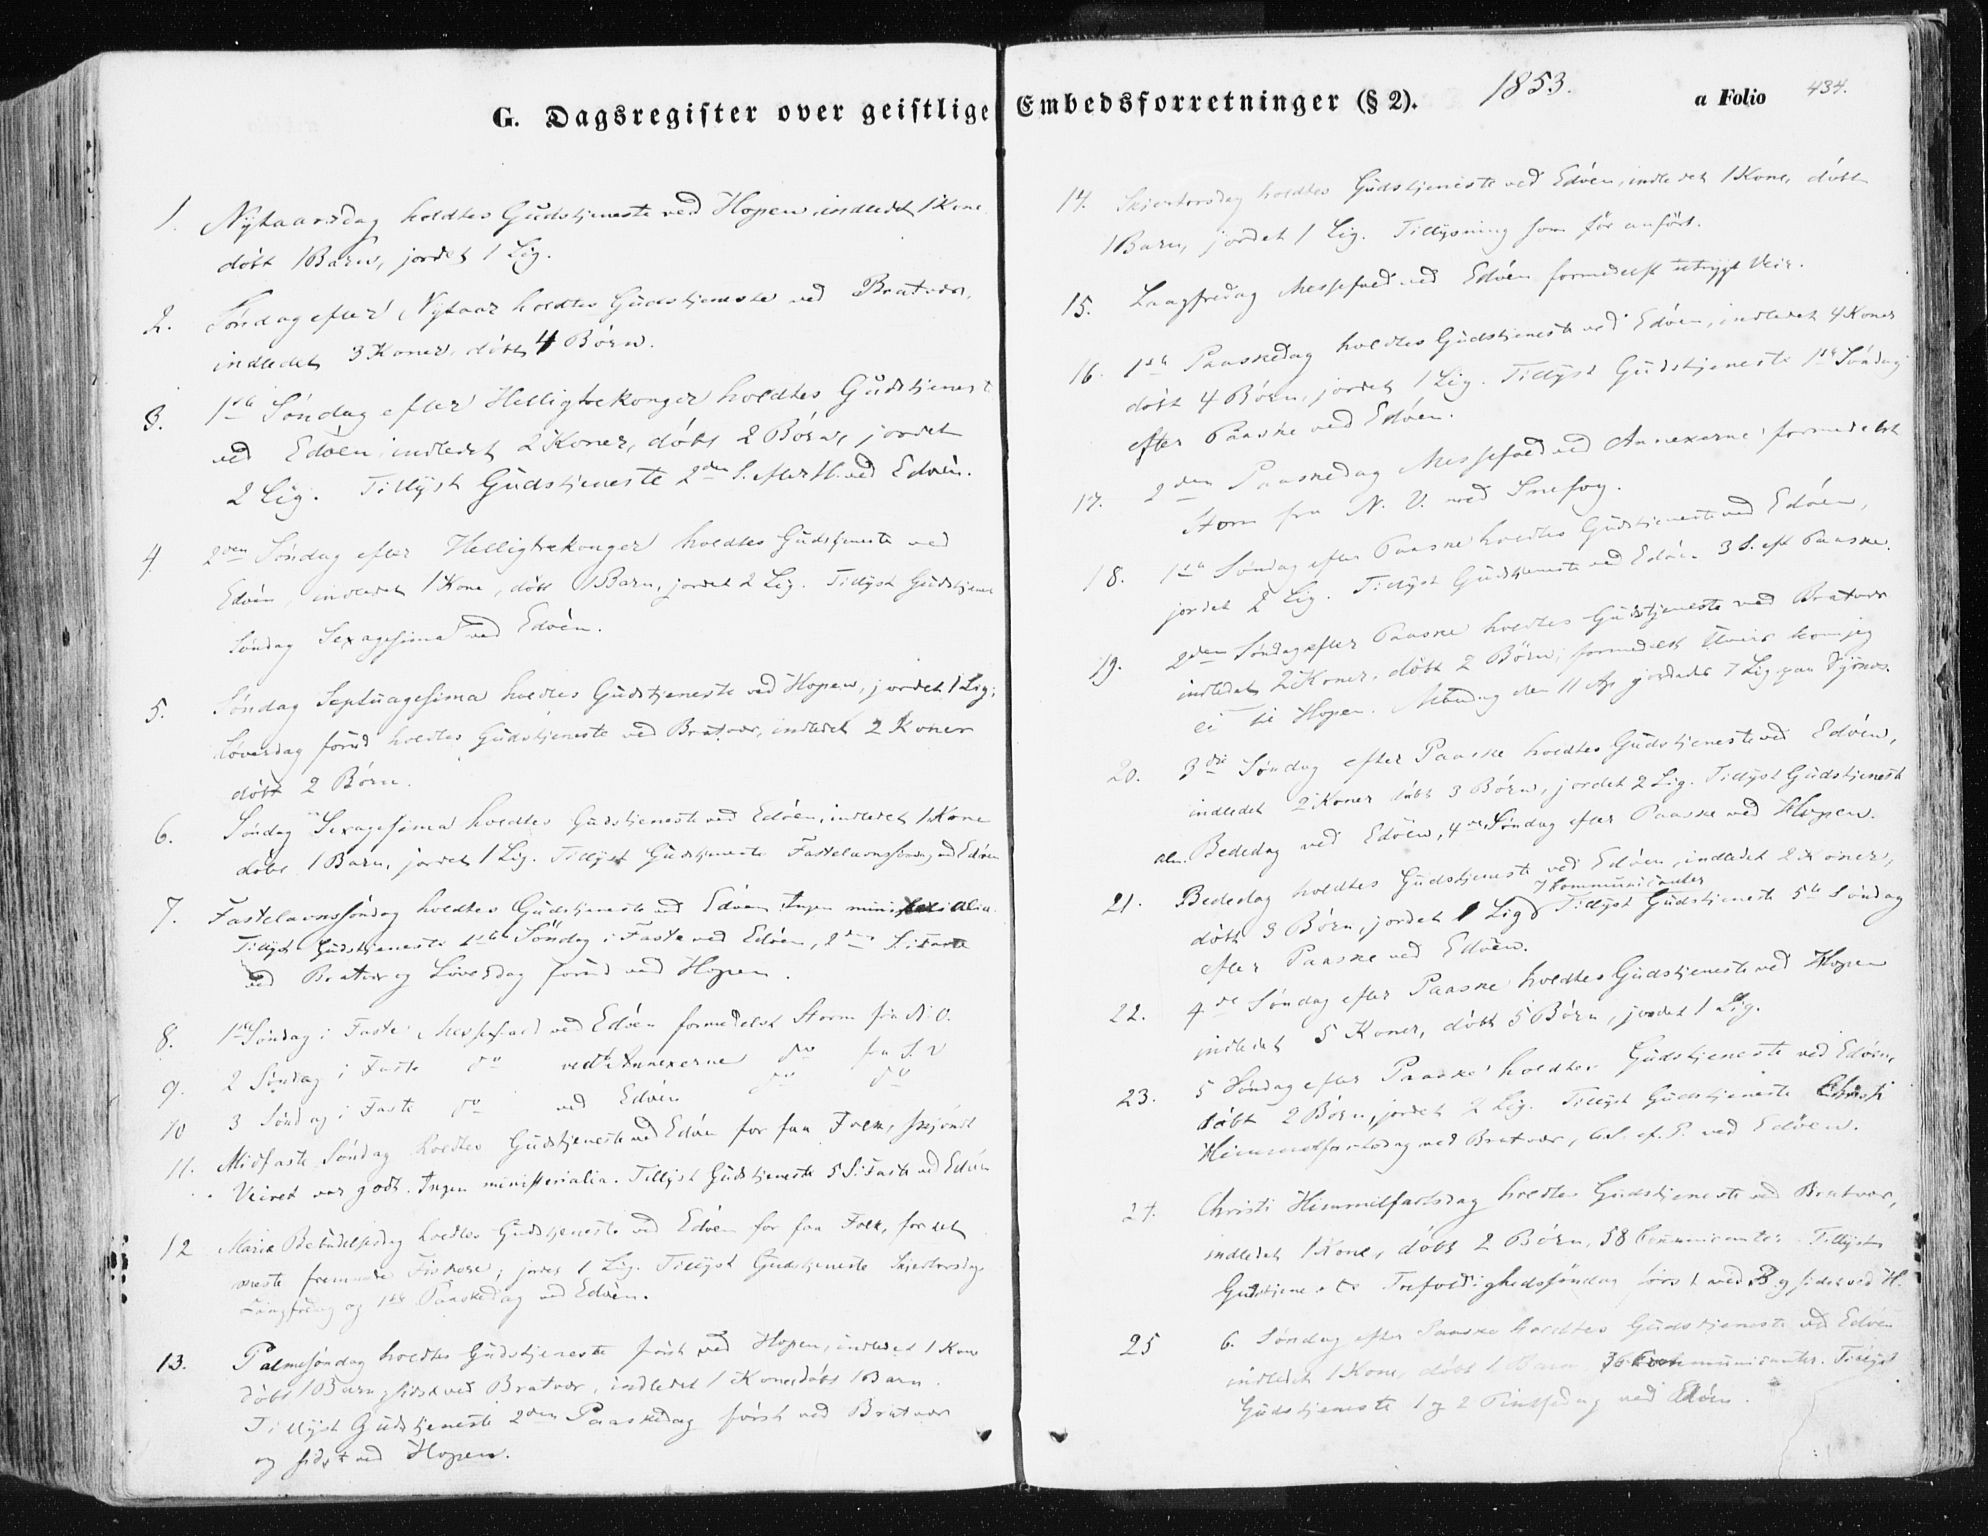 G. Dagsregister over geistlige Embedsforretninger (§ 2). 1853. a Folio 434.
1. Nytaarsdag holdtes Gudstjeneste ved Hopen, indledet 1 Kone
døbt 1 Barn, jordet 1 Lig.
2. Søndag efter Nytaar holdtes Gudstjeneste ved Bratvær,
indledet 3 Koner, døbt 4 Børn.
3. 1ste Søndag efter Helligtrekonger holdtes Gudstjenest
ved Edøen, indledet 2 Koner, døbt 2 Børn, jordet
2 Lig. Tillyst Gudstjeneste 2den S. efter H. ved Edøen.
4. 2den Søndag efter Helligtrekonger holdtes Gudstjeneste ved
Edøen, indledet 1 Kone, døbt 1 Barn, jordet 2 Lig. Tillyst Gudstjenest
Søndag Sexagesima ved Edøen.
5. Søndag Septuagesima holdtes Gudstjeneste ved Hopen, jordet 1 Lig;
Løverdag forud holdtes Gudstjeneste ved Bratvær, indledet 2 Koner
døbt 2 Børn.
6. Søndag Sexagesima holdtes Gudstjeneste ved Edøen, indledet 1 Kone
døbt 1 Barn, jordet 1 Lig. Tillyst Gudstjeneste Fastelavnssøndag ved Edøen
7. Fastelavnssøndag holdtes Gudstjeneste ved Edøen Ingen ministerialia.
Tillyst Gudstjeneste 1ste Søndag i Faste ved Edøen, 2den S. i Faste
ved Bratvær og Løverdag forud ved Hopen.
8. 1ste Søndag i Faste Messefald ved Edøen formedelst Storm fra N. V.
9. 2 Søndag i Faste do ved Annexerne do fra S. V
10 3 Søndag i Faste do ved Edøen do do
11. Midfaste Søndag holdtes Gudstjeneste ved Edøen for faa Folk, skjøndt
Veiret var godt. Ingen ministerialia. Tillyst Gudstjeneste 5 S. i Faste ved Edøen
12 Mariæ Bebudelsesdag holdtes Gudstjeneste ved Edøen for faa Folk, for det
meste fremmede Fiskere; jordet 1 Lig. Tillyst Gudstjeneste Skjertorsdag
Langfredag og 1ste Paaskedag ved Edøen.
13. Palmesøndag holdtes Gudstjeneste først ved Hopen, indledet 1 Kone
døbt 1 Barn, sidst ved Bratvær, indledet 1 Kone, døbt 1 Barn.
Tillyst Gudstjeneste 2den Paaskedag først ved Bratvær
og sidst ved Hopen.
14. Skjertorsdag holdtes Gudstjeneste ved Edøen, indledet 1 Kone, døbt
1 Barn, jordet 1 Lig. Tillysning som før anført.
15. Langfredag Messefald ved Edøen formedelst utrygt Veir.
16. 1ste Paaskedag holdtes Gudstjeneste ved Edøen, indledet 4 Koner
døbt 4 Børn, jordet 1 Lig. Tillyst Gudstjeneste 1ste Søndag
efter Paaske ved Edøen.
17. 2den Paaskedag Messefald ved Annexerne formedelst
Storm fra N. V. med Snefog.
18. 1ste Søndag efter Paaske holdtes Gudstjeneste ved Edøen,
jordet 2 Lig. Tillyst Gudstjeneste ved Edøen 3 S. eft Paaske.
19. 2den Søndag efter Paaske holdtes Gudstjeneste ved Bratvær
indledet 2 Koner, døbt 2 Børn; formedelst Uveir kom jeg
ei til Hopen. Mandag den 11 Ap jordet 7 Lig paa Dyrnes.
20. 3die Søndag efter Paaske holdtes Gudstjeneste ved Edøen,
indledet 2 Koner døbt 3 Børn, jordet 2 Lig. Tillyst Gudstjenest
alm. Bededag ved Edøen, 4de Søndag efter Paaske ved Hopen.
21. Bededag holdtes Gudstjeneste ved Edøen, indledet 2 Koner,
7 Communicanter
døbt 3 Børn, jordet 1 Lig Tillyst Gudstjeneste 5te Søndag
efter Paaske ved Edøen.
22. 4de Søndag efter Paaske holdtes Gudstjeneste ved Hopen
indledet 5 Koner, døbt 5 Børn, jordet 1 Lig.
23. 5 Søndag efter Paaske holdtes Gudstjeneste ved Edøen,
døbt 2 Børn, jordet 2 Lig. Tillyst Gudstjeneste Christi
Himmelfartsdag ved Bratvær, 6 S. ef. P. ved Edøen.
24. Christi Himmelfartsdag holdtes Gudstjeneste ved Bratvær,
indledet 1 Kone, døbt 2 Børn, 58 Communicanter. Tillyst
Gudstjeneste Trefoldighedssøndag først ved B. og sidst ved H.
25 6. Søndag efter Paaske holdtes Gudstjeneste ved Edøen
indledet 1 Kone, døbt 1 Barn, 36 Communicanter. Tillyst
Gudstjeneste 1 og 2 Pintsedag ved Edøen.